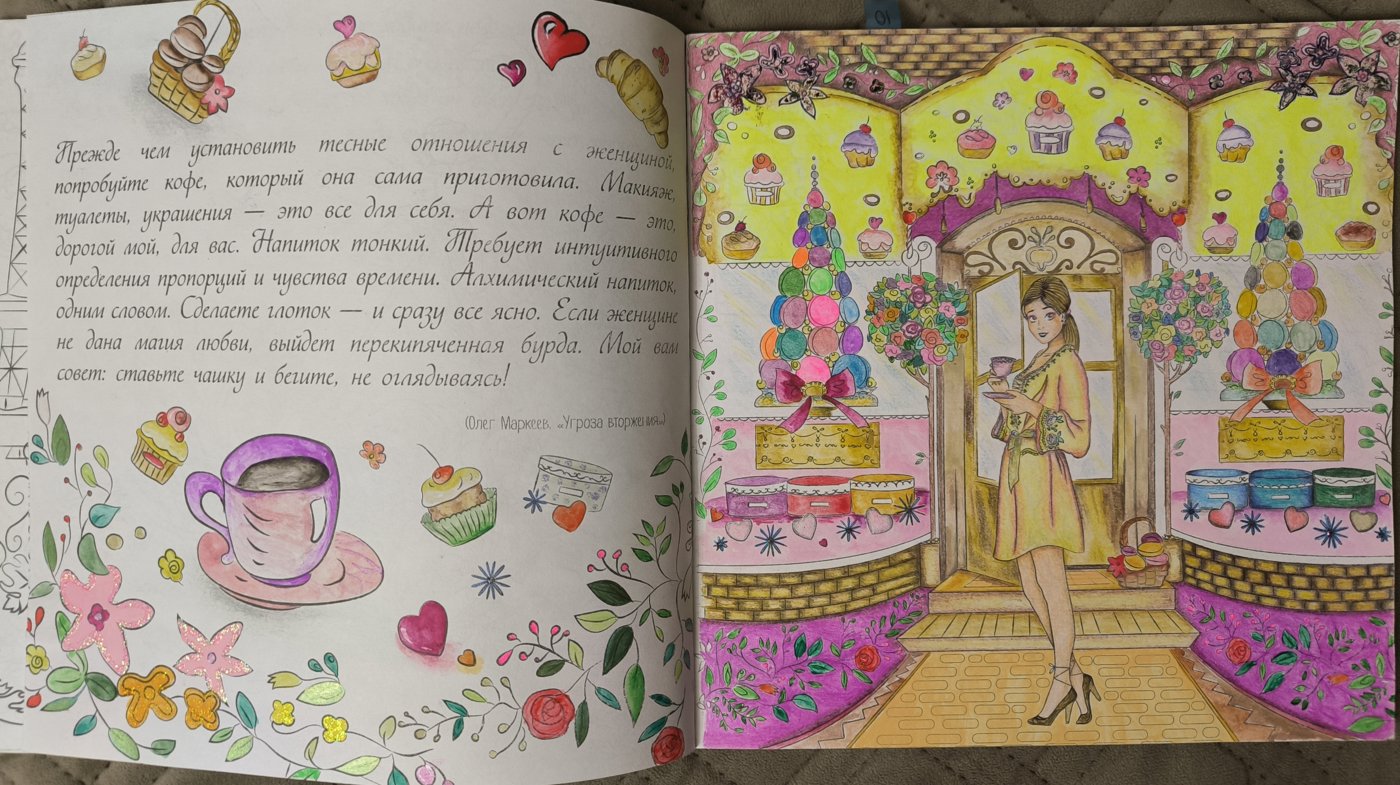 Прежде чем установить тесные отношения с женщиной,
попробуйте кофе, который она сама приготовила. Макияж,
туалеты, украшения — это все для себя. А вот кофе — это,
дорогой мой, для вас. Напиток тонкий. Требует интуитивного
определения пропорций и чувства времени. Алхимический напиток,
одним словом. Сделаете глоток — и сразу все ясно. Если женщине
не дана магия любви, выйдет перекипяченная бурда. Мой вам
совет: ставьте чашку и бегите, не оглядываясь!
(Олег Маркеев. «Угроза вторжения»)